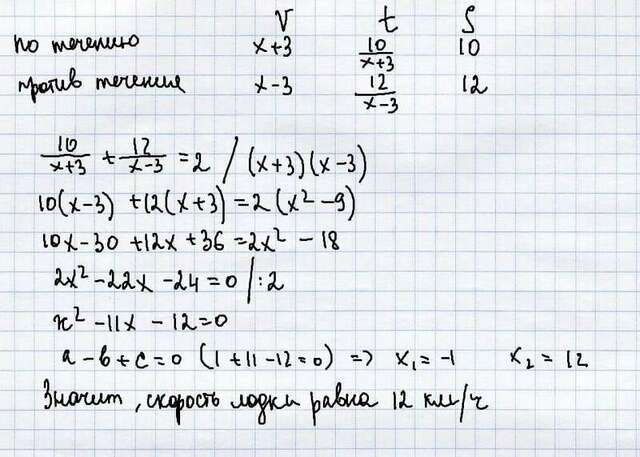 V t S
по течению x+3 10/(x+3) 10
против течения x-3 12/(x-3) 12
10/(x+3) + 12/(x-3) = 2 / (x+3)(x-3)
10(x-3) +12(x+3)=2(x²-9)
10x-30+12x+36=2x²-18
2x²-22x-24=0/:2
x²-11x-12=0
a-b+c=0 (1+11-12=0) => x₁=-1 x₂=12
Значит, скорость лодки равна 12 км/ч